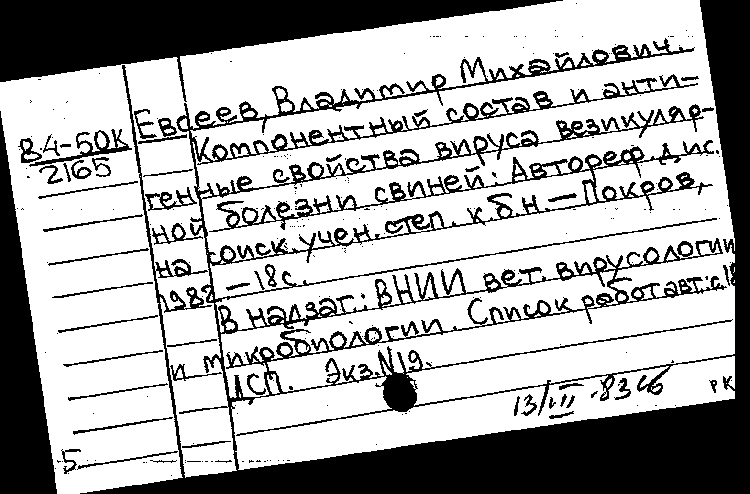 84-50К
2165
Евсеев, Владимир Михайлович.
Компонентный состав и анти-
генные свойства вируса везикуляр-
ной болезни свиней: Автореф. дис.
на соиск. учен. степ. к.б.н. — Покров,
1982. — 18 с.
В надзаг.: ВНИИ вет. вирусологии
и микробиологии. Список работ авт.: с. 18
ДСП. Экз. N19.
13/III-83
РК
5